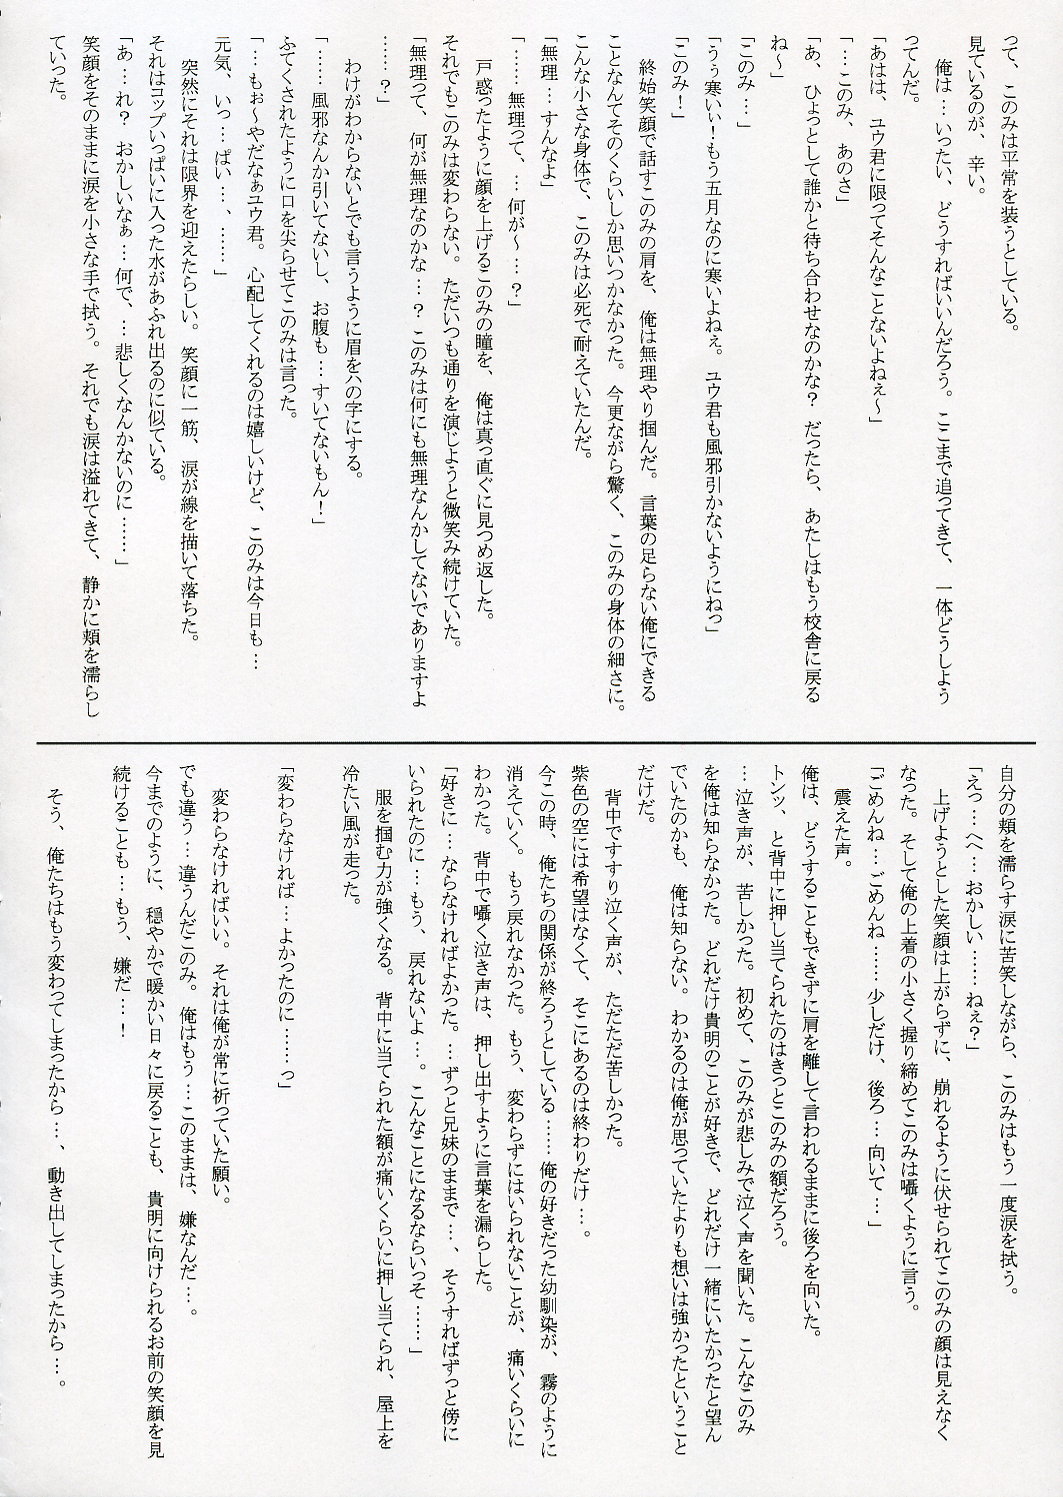 って、このみは平常を装うとしている。
見ているのが、辛い。
俺は…いったい、どうすればいいんだろう。ここまで追ってきて、一体どうしよう
ってんだ。
「あはは、ユウ君に限ってそんなことないよねぇ〜」
「…このみ、あのさ」
「あ、ひょっとして誰かと待ち合わせなのかな？　だったら、あたしはもう校舎に戻る
ね〜」
「このみ…」
「うぅ寒いぃ！もう五月なのに寒いよねぇ。ユウ君も風邪引かないようにねっ」
「このみ！」
終始笑顔で話すこのみの肩を、俺は無理やり掴んだ。言葉の足らない俺にできる
ことなんてそのくらいしか思いつかなかった。今更ながら驚く、このみの身体の細さに。
こんな小さな身体で、このみは必死で耐えていたんだ。
「無理…すんなよ」
「……無理って、…何が〜…？」
戸惑ったように顔を上げるこのみの瞳を、俺は真っ直ぐに見つめ返した。
それでもこのみは変わらない。ただいつも通りを演じようと微笑み続けていた。
「無理って、何が無理なのかな…？このみは何にも無理なんかしてないでありますよ
……？」
わけがわからないとでも言うように眉を八の字にする。
「……風邪なんか引いてないし、お腹も…すいてないもん！」
ふてくされたように口を尖らせてこのみは言った。
「…もぉ〜やだなぁユウ君。心配してくれるのは嬉しいけど、このみは今日も…
元気、いっ…ぱい…、……」
突然にそれは限界を迎えたらしい。笑顔に一筋、涙が線を描いて落ちた。
それはコップいっぱいに入った水があふれ出るのに似ている。
「あ…れ？　おかしいなぁ…何で、…悲しくなんかないのに……」
笑顔をそのままに涙を小さな手で拭う。それでも涙は溢れてきて、静かに頬を濡らし
ていった。
自分の頬を濡らす涙に苦笑しながら、このみはもう一度涙を拭う。
「えっ…へへ…おかしい……ねぇ？」
上げようとした笑顔は上がらずに、崩れるように伏せられてこのみの顔は見えなく
なった。そして俺の上着の小さく握り締めてこのみは囁くように言う。
「ごめんね…ごめんね……少しだけ、後ろ…向いて…」
震えた声。
俺は、どうすることもできずに肩を離して言われるままに後ろを向いた。
トンッ、と背中に押し当てられたのはきっとこのみの額だろう。
…泣き声が、苦しかった。初めて、このみが悲しみで泣く声を聞いた。こんなこのみ
を俺は知らなかった。どれだけ貴明のことが好きで、どれだけ一緒にいたかったと望ん
でいたのかも、俺は知らない。わかるのは俺が思っていたよりも想いは強かったということ
だけだ。
背中ですすり泣く声が、ただただ苦しかった。
紫色の空には希望はなくて、そこにあるのは終わりだけ…。
今この時、俺たちの関係が終ろうとしている……俺の好きだった幼馴染が、霧のように
消えていく。もう戻れなかった。もう、変わらずにはいられないことが、痛いくらいに
わかった。背中で囁く泣き声は、押し出すように言葉を漏らした。
「好きに…ならなければよかった。…ずっと兄妹のままで…、そうすればずっと傍に
いられたのに…もう、戻れないよ…。こんなことになるならいっそ……」
服を掴む力が強くなる。背中に当てられた額が痛いくらいに押し当てられ、屋上を
冷たい風が走った。
「変わらなければ…よかったのに……っ」
変わらなければいい。それは俺が常に祈っていた願い。
でも違う…違うんだこのみ。俺はもう…このままは、嫌なんだ…。
今までのように、穏やかで暖かい日々に戻ることも、貴明に向けられるお前の笑顔を見
続けることも…もう、嫌だ…！
そう、俺たちはもう変わってしまったから…、動き出してしまったから…。